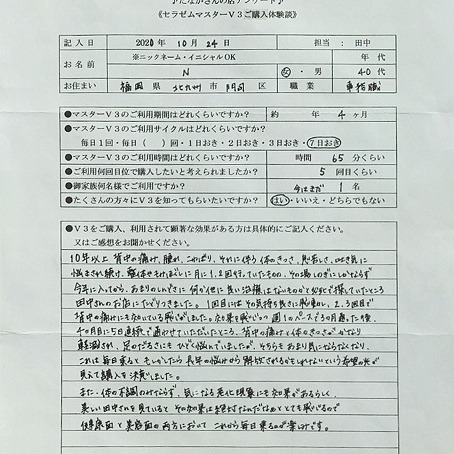 ♪たなかさんの店アンケート♪
《セラゼムマスターV3ご購入体験談》
記入日 2020年10月24日 担当：田中
お名前 ※ニックネーム・イニシャルOK N 女・男 40代
お住まい 福岡県 北九州市 門司区 職業 事務職
●マスターV3のご利用期間はどれくらいですか？ 約 年 4ヶ月
●マスターV3のご利用サイクルはどれくらいですか？
毎日1回・毎日（ ）回・1日おき・2日おき・3日おき・7日おき
●マスターV3のご利用時間はどれくらいですか？ 時間 65分くらい
●ご利用何回目位で購入したいと考えられましたか？ 5回目くらい
●御家族何名様でご利用ですか？ 今はまだ 1名
●たくさんの方々にV3を知ってもらいたいですか？ はい・いいえ・どちらでもない
●V3をご購入、利用されて顕著な効果がある方は具体的にご記入ください。
又はご感想をお聞かせください。
10年以上 背中の痛み、腫れ、こわばり、それに伴う体のきつさ、息苦しさ、吐き気に
悩まされ続け、整体やそれほぐしに月に1,2回行っていたものの、その場しのぎにしかならず
今年に入ってから、あまりのしんどさに何か他に良い治療はないものかと必死で探していたところ
田中さんのお店にたどりつきました。1回目にはその気持ち良さに感動し、2,3回目で
背中の痛みにも効いている感じがしました。効果を感じつつ週1のペースで3か月通った後、
4ヶ月目に5日連続で通わせていただいたところ、背中の痛みと体のきつさがかなり
軽減され、足のだるさにもひどく悩んでいましたが、そちらもあまり気にならなくなり
これは毎日乗るともしかしたら長年の悩みから解放されるかもしれないという希望の光が
見えて購入を決意しました。
また、体の不調のみならず、気になる老化現象にも効果があるらしく
美しい田中さんを見ていると その効果は絶対なんだなぁととても感じるので
健康面と美容面の両方において これから毎日乗るのが楽しみです。